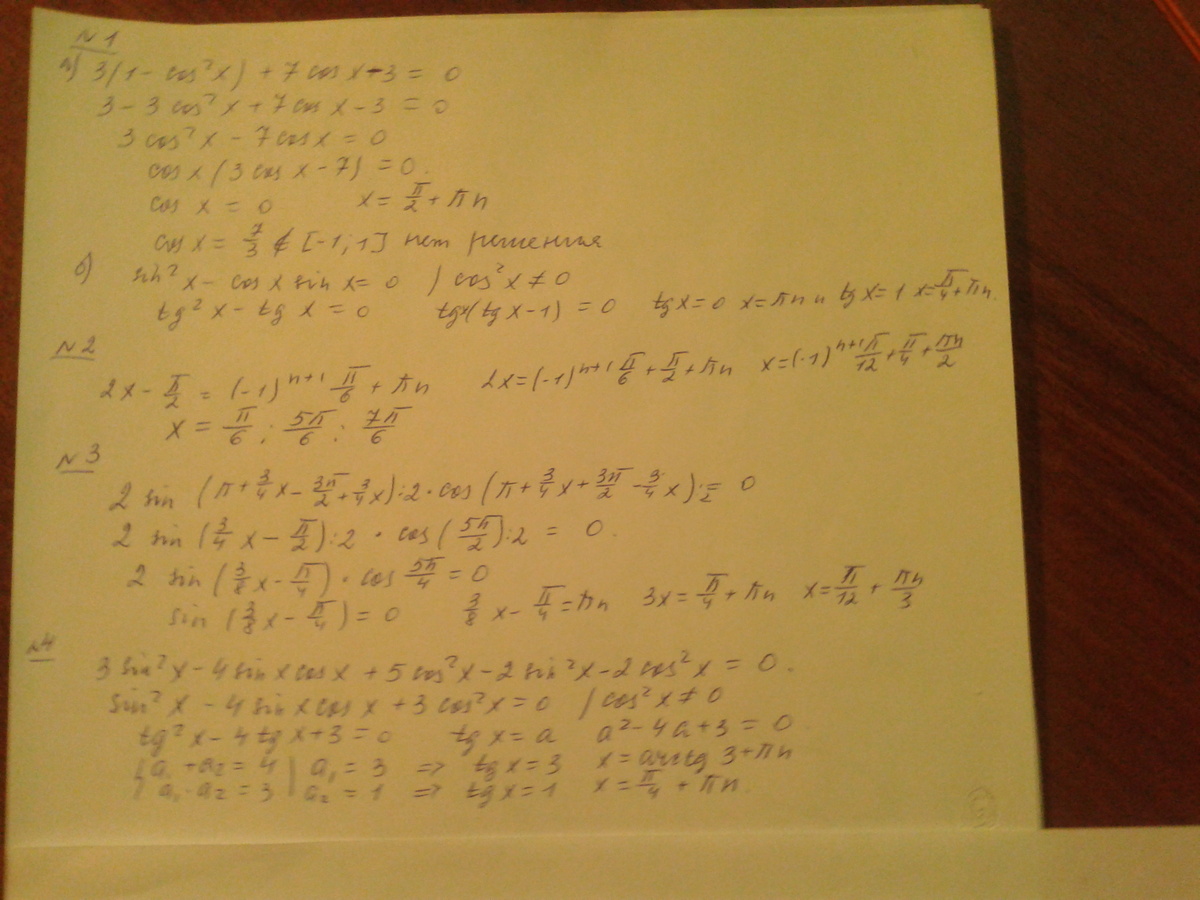 №1
а) 3(1 - cos²x) + 7cos x - 3 = 0
3 - 3cos²x + 7cos x - 3 = 0
3cos²x - 7cos x = 0
cos x(3cos x - 7) = 0.
cos x = 0 x = π/2 + πn
cos x = 7/3 ∉ [-1; 1] нет решения
б) sin²x - cos x sin x = 0 / cos²x ≠ 0
tg²x - tg x = 0 tgx(tg x - 1) = 0 tgx = 0 x = πn и tgx = 1 x = π/4 + πn.
№2
2x - π/2 = (-1)ⁿ⁺¹ π/6 + πn 2x = (-1)ⁿ⁺¹ π/6 + π/2 + πn x = (-1)ⁿ⁺¹ π/12 + π/4 + πn/2
x = π/6; 5π/6; 7π/6
№3
2 sin (π + 3/4x - 3π/2 + 3/4x):2 · cos (π + 3/4x + 3π/2 - 3/4x):2 = 0
2 sin (3/4x - π/2):2 · cos (5π/2):2 = 0.
2 sin (3/8x - π/4) · cos 5π/4 = 0
sin (3/8x - π/4) = 0 3/8 x - π/4 = πn 3x = π/4 + πn x = π/12 + πn/3
№4
3 sin²x - 4 sin x cos x + 5 cos²x - 2 sin²x - 2 cos²x = 0.
sin²x - 4 sin x cos x + 3 cos²x = 0 / cos²x ≠ 0
tg²x - 4 tg x + 3 = 0 tg x = a a² - 4a + 3 = 0.
{ a₁ + a₂ = 4 | a₁ = 3 => tg x = 3 x = arctg 3 + πn
a₁ · a₂ = 3 | a₂ = 1 => tg x = 1 x = π/4 + πn.